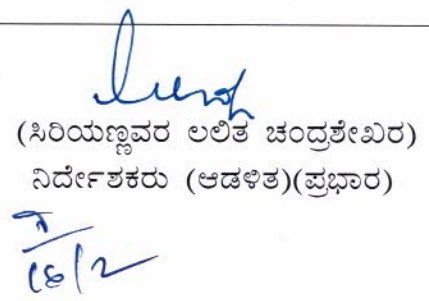 (ಸಿರಿಯಣ್ಣವರ ಲಲಿತ ಚಂದ್ರಶೇಖರ)
ನಿರ್ದೇಶಕರು (ಆಡಳಿತ)(ಪ್ರಭಾರ)